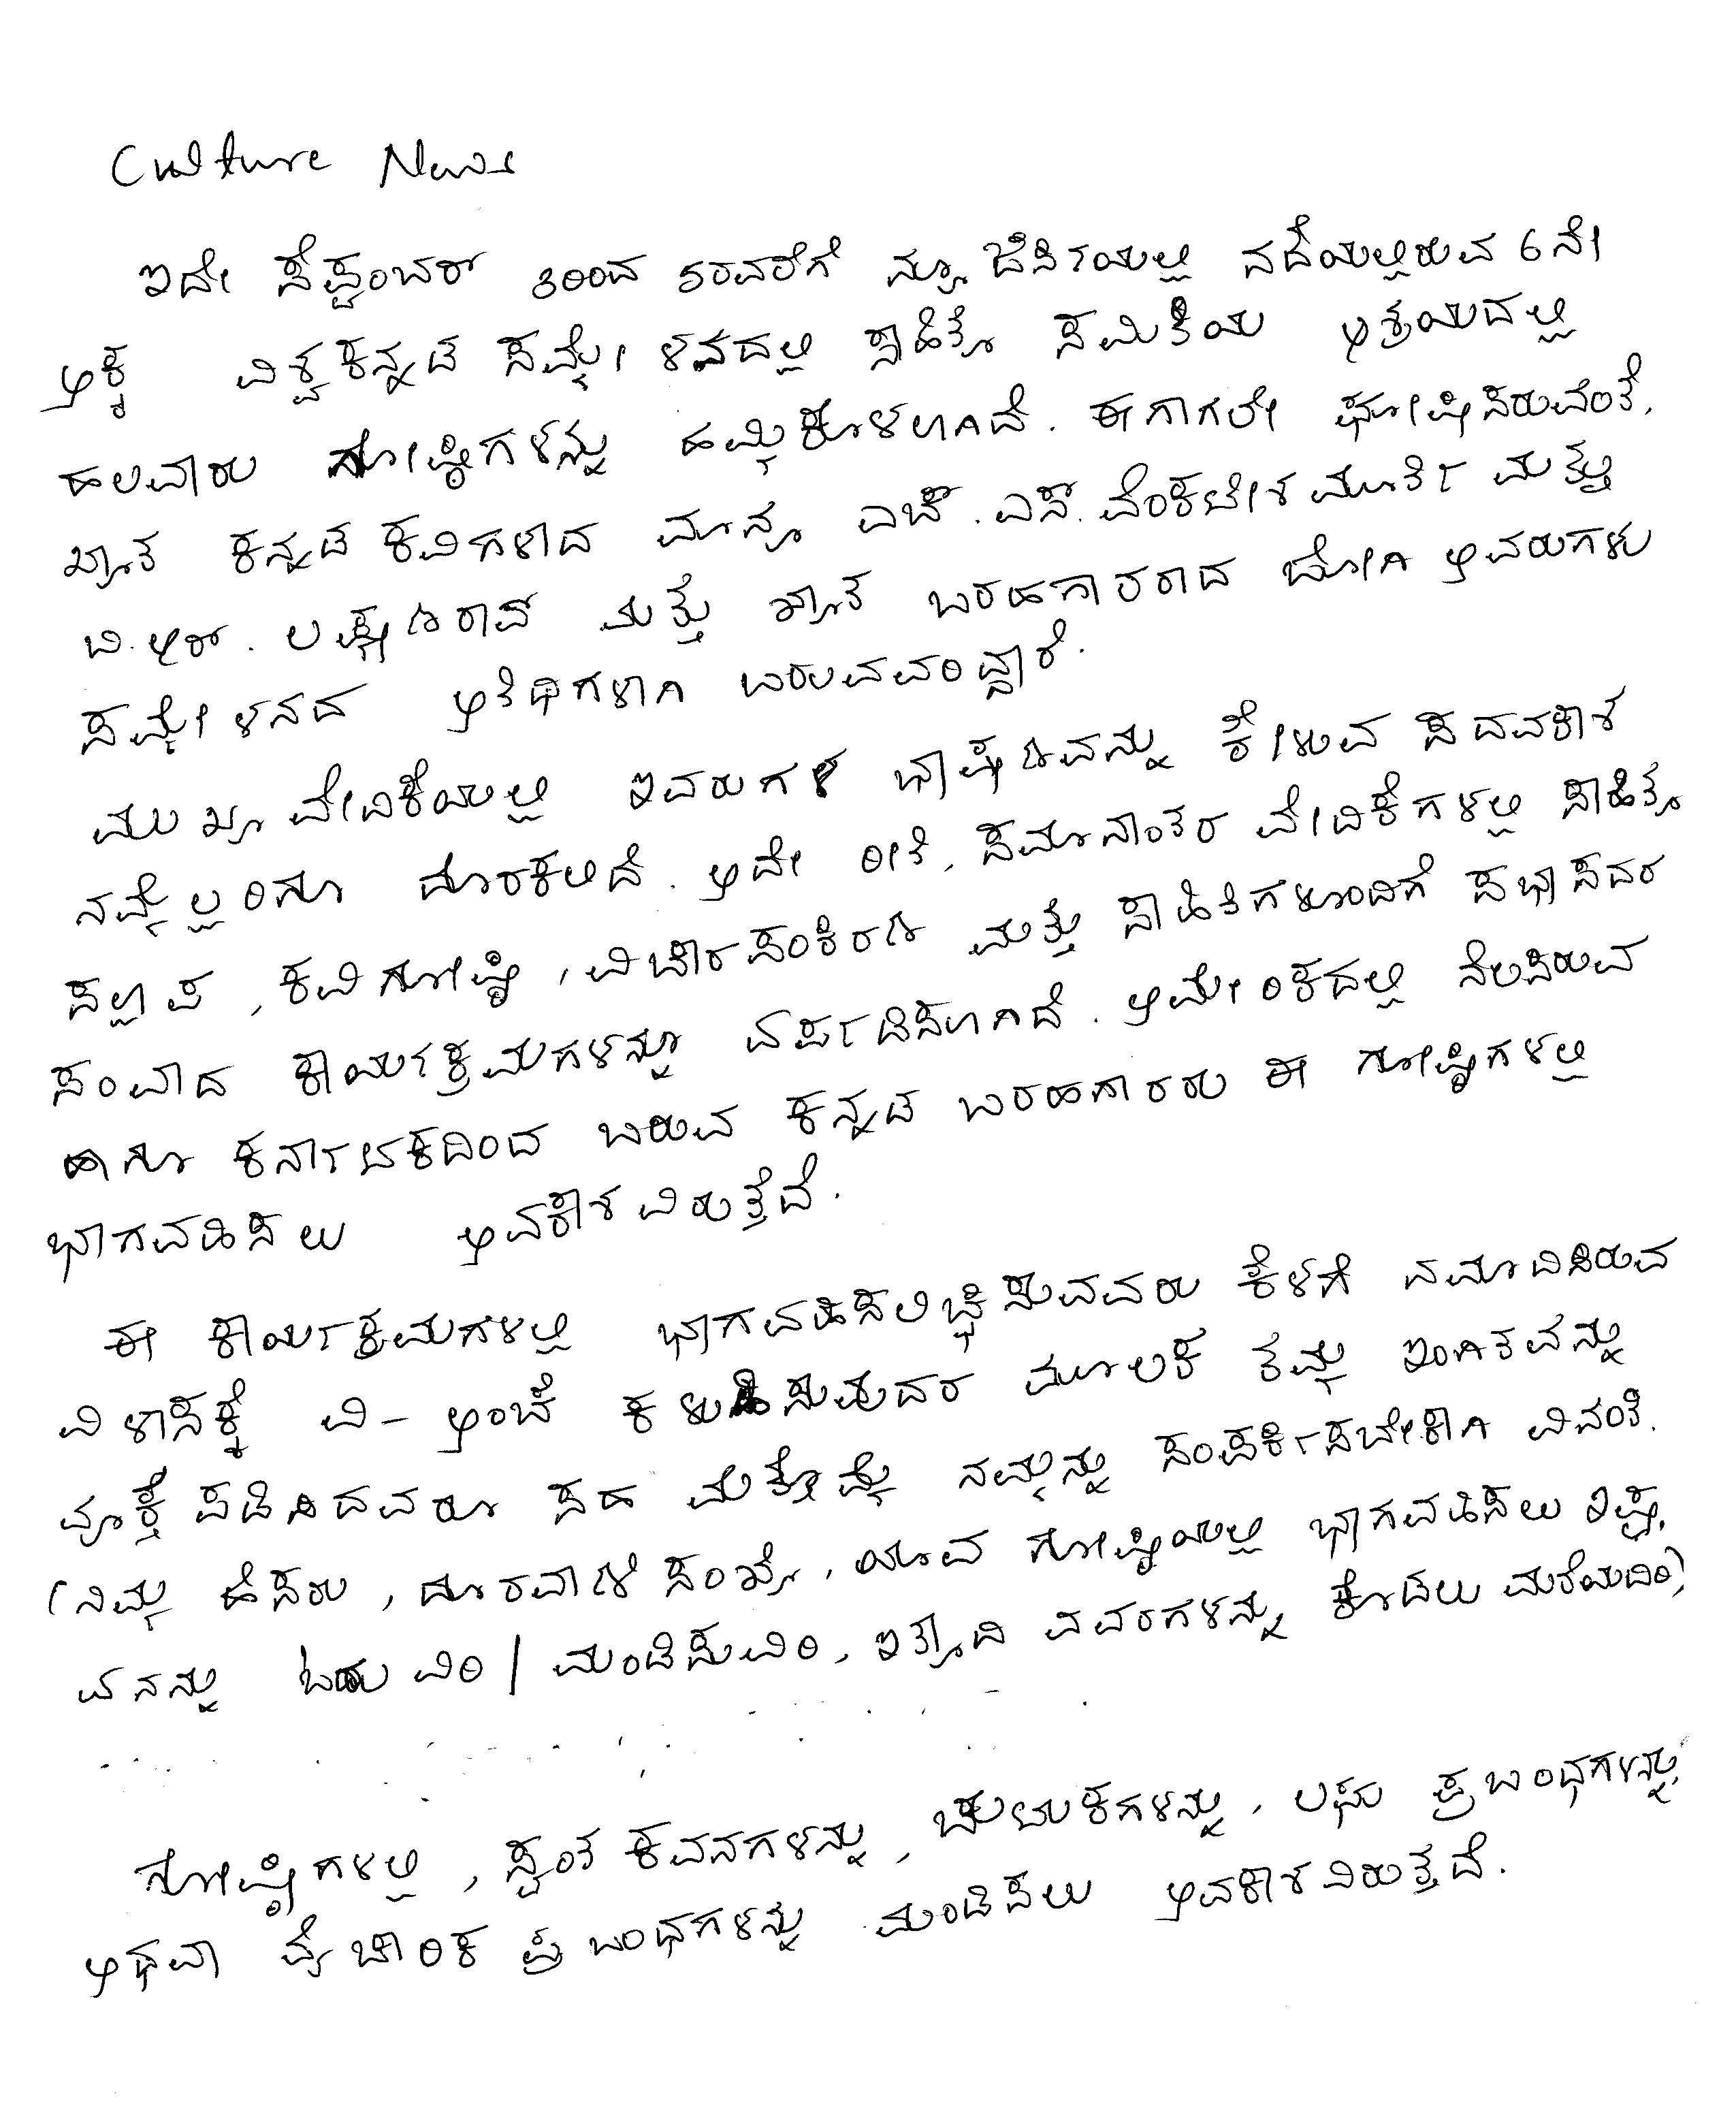 Culture News
ಇದೇ ಸೆಪ್ಟಂಬರ್ 3ರಿಂದ 5ರವರೆಗೆ ನ್ಯೂಜೆರ್ಸಿಯಲ್ಲಿ ನಡೆಯಲ್ಲಿರುವ 6ನೇ
ಅಕ್ಕ ವಿಶ್ವಕನ್ನಡ ಸಮ್ಮೇಳನದಲ್ಲಿ ಸಾಹಿತ್ಯ ಸಮಿತಿಯ ಆಶ್ರಯದಲ್ಲಿ
ಹಲವಾರು ಗೋಷ್ಠಿಗಳನ್ನು ಹಮ್ಮಿಕೊಳಲಾಗಿದೆ. ಈಗಾಗಲೇ ಘೋಷಿಸಿರುವಂತೆ,
ಖ್ಯಾತ ಕನ್ನಡ ಕವಿಗಳಾದ ಮಾನ್ಯ ಎಚ್. ಎಸ್. ವೆಂಕಟೇಶಮೂರ್ತಿ ಮತ್ತು
ಬಿ.ಆರ್. ಲಕ್ಷ್ಮಣರಾವ್ ಮತ್ತೆ ಖ್ಯಾತ ಬರಹಗಾರರಾದ ಜೋಗಿ ಅವರುಗಳು
ಸಮ್ಮೇಳನದ ಅತಿಥಿಗಳಾಗಿ ಬರುವವರಿದ್ದಾರೆ.
ಮುಖ್ಯ ವೇದಿಕೆಯಲ್ಲಿ ಇವರುಗಳ ಭಾಷಣವನ್ನು ಕೇಳುವ ಸದವಕಾಶ
ನಮ್ಮೆಲ್ಲರಿಗೂ ದೊರಕಲಿದೆ. ಅದೇ ರೀತಿ, ಸಮಾನಾಂತರ ವೇದಿಕೆಗಳಲ್ಲಿ ಸಾಹಿತ್ಯ
ಸಲ್ಲಾಪ, ಕವಿಗೋಷ್ಠಿ, ವಿಚಾರಸಂಕಿರಣ ಮತ್ತು ಸಾಹಿತಿಗಳೊಂದಿಗೆ ಸಭಾಸದರ
ಸಂವಾದ ಕಾರ್ಯಕ್ರಮಗಳನ್ನೂ ಏರ್ಪಡಿಸಲಾಗಿದೆ. ಅಮೇರಿಕದಲ್ಲಿ ನೆಲಸಿರುವ
ಹಾಗೂ ಕರ್ನಾಟಕದಿಂದ ಬರುವ ಕನ್ನಡ ಬರಹಗಾರರು ಈ ಗೋಷ್ಠಿಗಳಲ್ಲಿ
ಭಾಗವಹಿಸಲು ಅವಕಾಶವಿರುತ್ತದೆ.
ಈ ಕಾರ್ಯಕ್ರಮಗಳಲ್ಲಿ ಭಾಗವಹಿಸಲಿಚ್ಛಿಸುವವರು ಕೆಳಗೆ ನಮೂದಿಸಿರುವ
ವಿಳಾಸಕ್ಕೆ ವಿ-ಅಂಚೆ ಕಳುಹಿಸುವುದರ ಮೂಲಕ ತಮ್ಮ ಇಂಗಿತವನ್ನು
ವ್ಯಕ್ತ ಪಡಿಸಿದವರೂ ಸಹ ಮತ್ತೊಮ್ಮೆ ನಮ್ಮನ್ನು ಸಂಪರ್ಕಿಸಬೇಕಾಗಿ ವಿನಂತಿ.
(ನಿಮ್ಮ ಹೆಸರು, ದೂರವಾಣಿ ಸಂಖ್ಯೆ, ಯಾವ ಗೋಷ್ಠಿಯಲ್ಲಿ ಭಾಗವಹಿಸಲು ಇಷ್ಟ,
ಏನನ್ನು ಓದುವಿರಿ / ಮಂಡಿಸುವಿರಿ, ಇತ್ಯಾದಿ ವಿವರಗಳನ್ನು ಕೊಡಲು ಮರೆಯದಿರಿ)
ಗೋಷ್ಠಿಗಳಲ್ಲಿ, ಸ್ವಂತ ಕವನಗಳನ್ನು, ಚುಟುಕಗಳನ್ನು, ಲಘು ಪ್ರಬಂಧಗಳನ್ನು
ಅಥವಾ ವೈಚಾರಿಕ ಪ್ರಬಂಧಗಳನ್ನು ಮಂಡಿಸಲು ಅವಕಾಶವಿರುತ್ತದೆ.